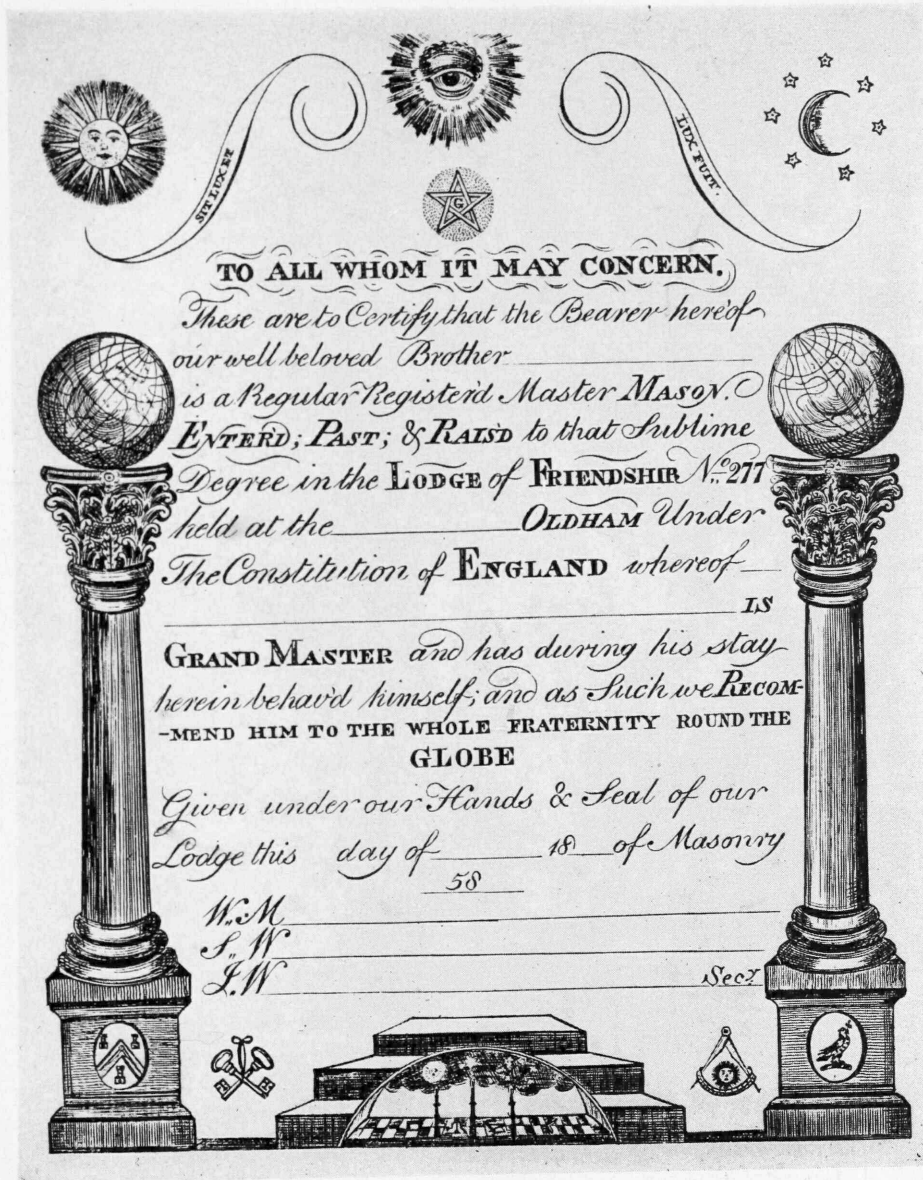 SIT LUX ET
LUX FUIT.
G
TO ALL WHOM IT MAY CONCERN.
These are to Certify that the Bearer hereof
our well beloved Brother
is a Regular Register'd Master MASON.
ENTER'D; PAST; & RAIS'D to that Sublime
Degree in the LODGE of FRIENDSHIP No. 277
held at the OLDHAM Under
The Constitution of ENGLAND whereof
IS
GRAND MASTER and has during his stay
herein behav'd himself; and as Such we RECOM-
-MEND HIM TO THE WHOLE FRATERNITY ROUND THE
GLOBE
Given under our Hands & Seal of our
Lodge this day of 18 of Masonry
58
W.M
S.W
J.W Secy